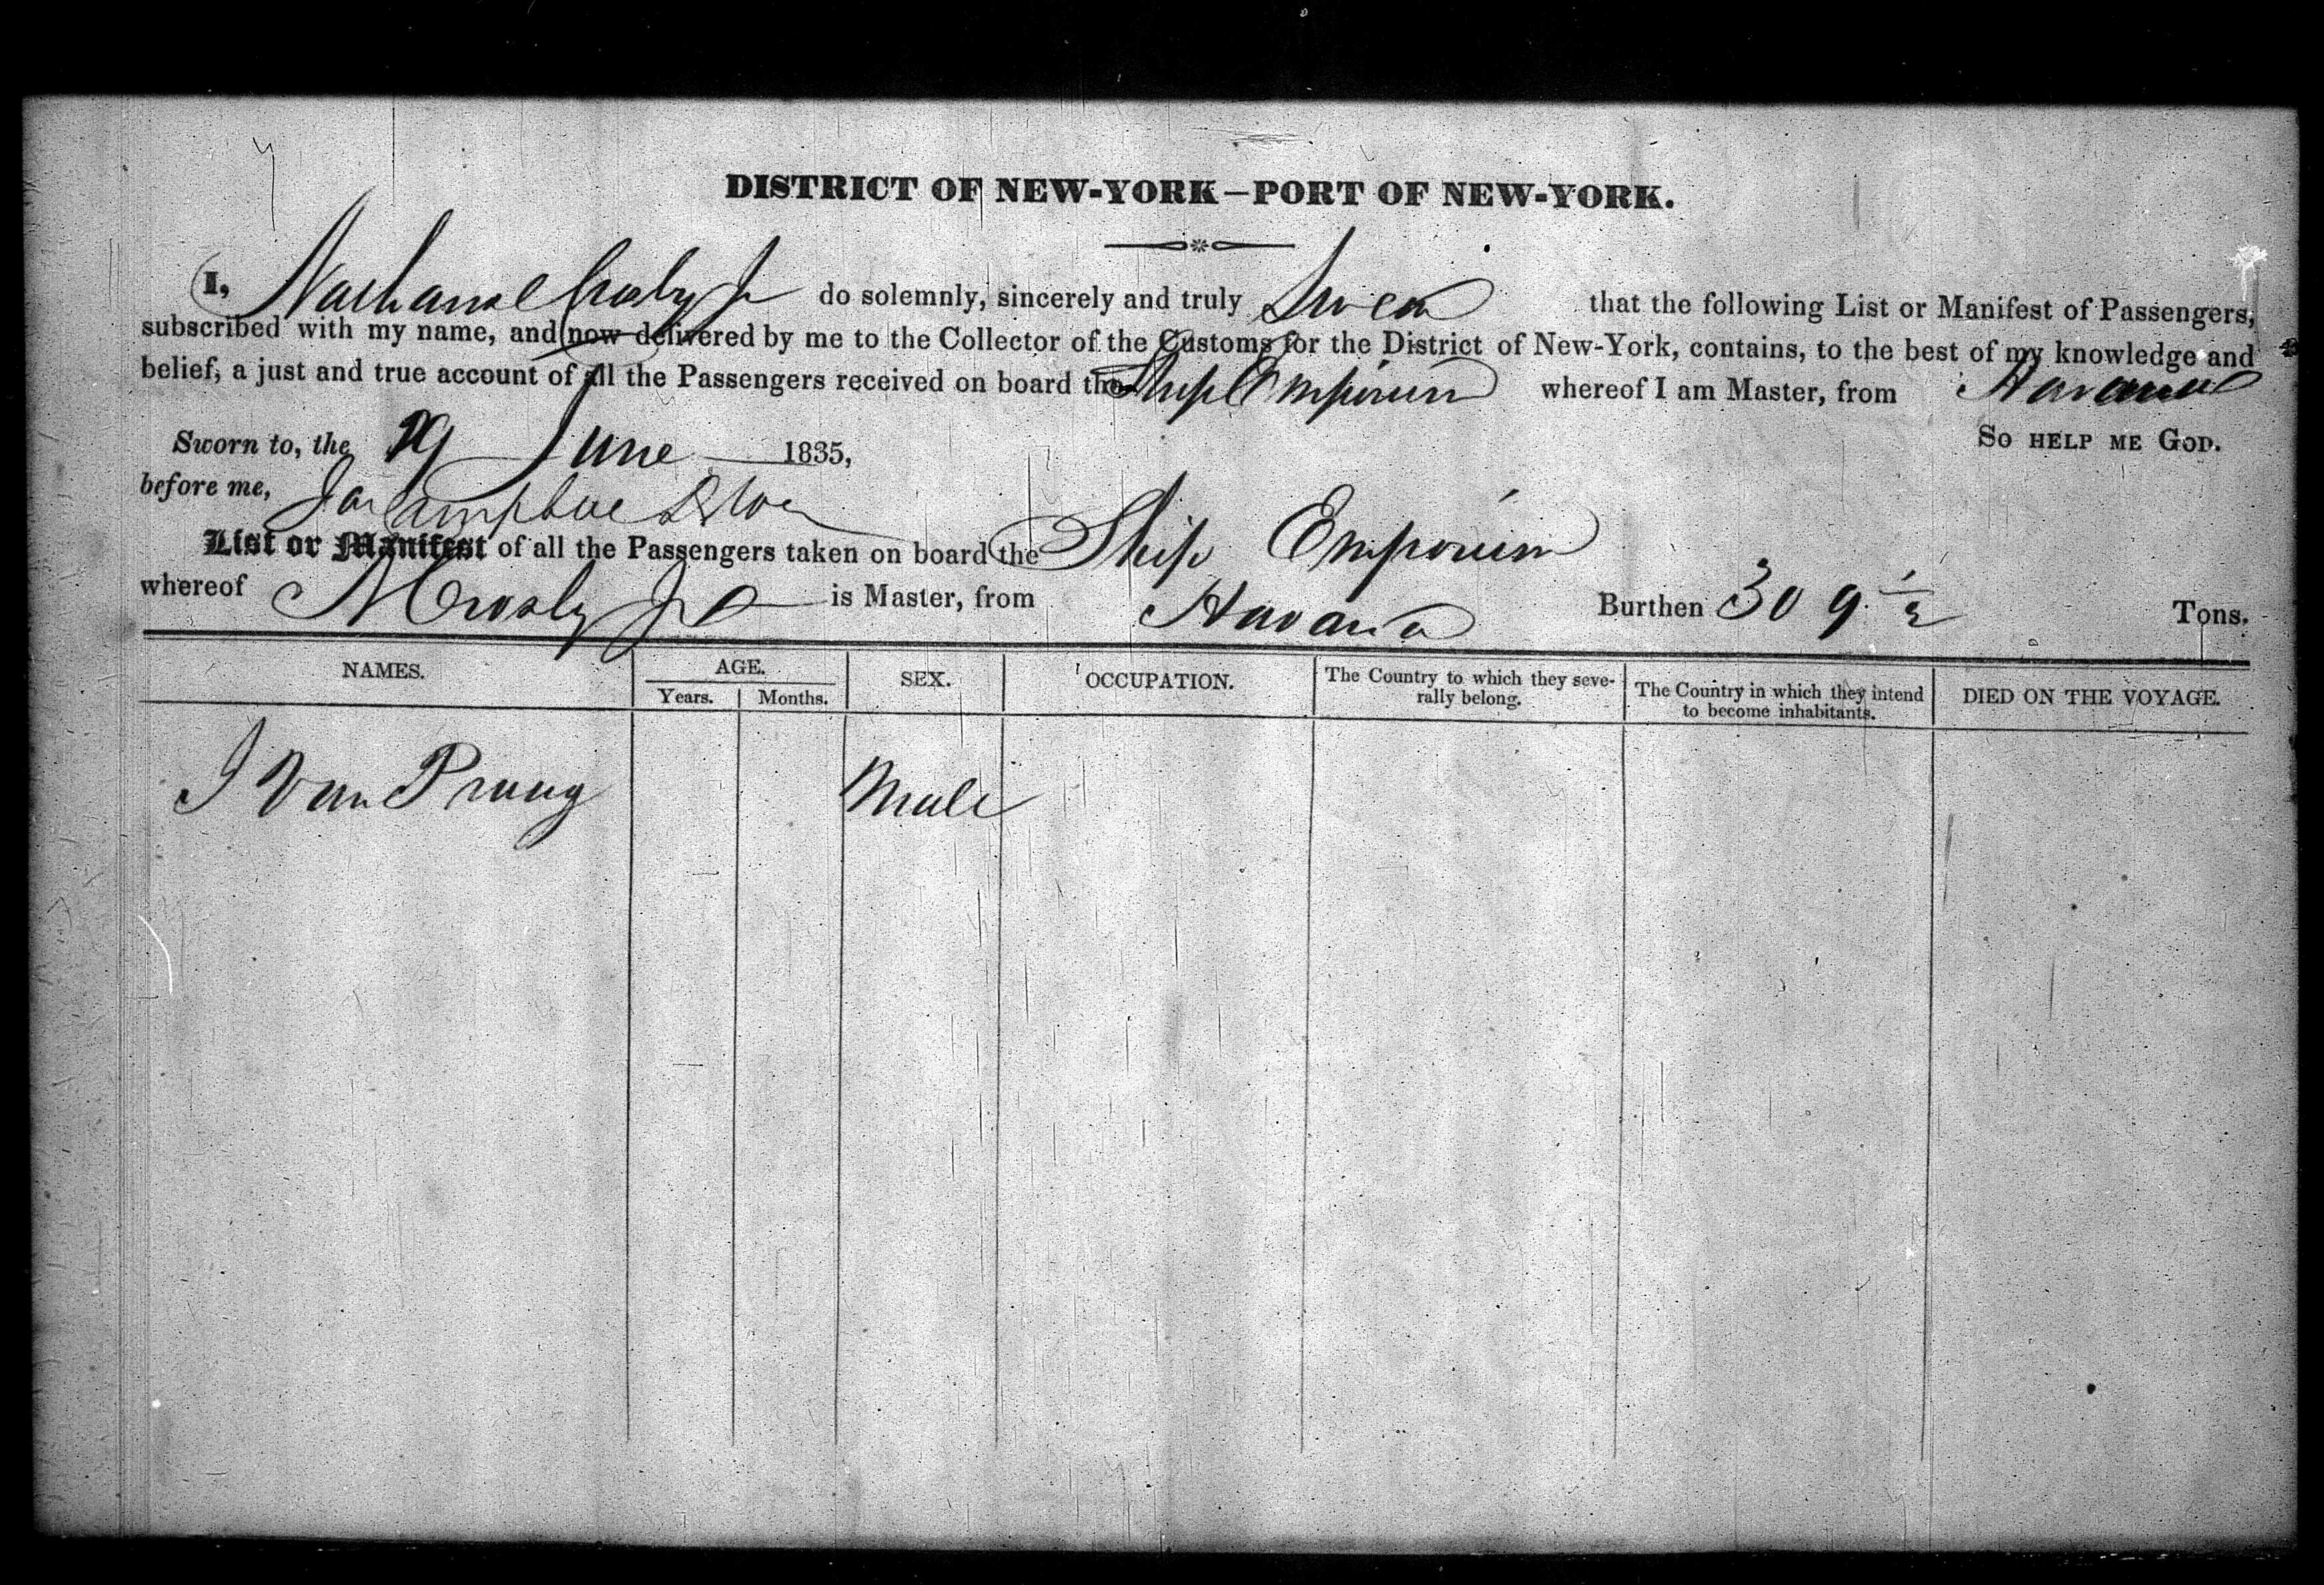 DISTRICT OF NEW-YORK—PORT OF NEW-YORK.
I, Nathaniel Crosby Jr do solemnly, sincerely and truly Swear that the following List or Manifest of Passengers,
subscribed with my name, and now delivered by me to the Collector of the Customs for the District of New-York, contains, to the best of my knowledge and
belief, a just and true account of all the Passengers received on board the Ship Emporium whereof I am Master, from Havana
So HELP ME GOD.
Sworn to, the 29 June 1835,
before me, Jas Campbell
List or Manifest of all the Passengers taken on board the Ship Emporium
whereof N Crosby Jr is Master, from Havana Burthen 309 1/2 Tons.
NAMES. AGE. Years. Months. SEX. OCCUPATION. The Country to which they seve-
rally belong. The Country in which they intend
to become inhabitants. DIED ON THE VOYAGE.
J Van Praag Male